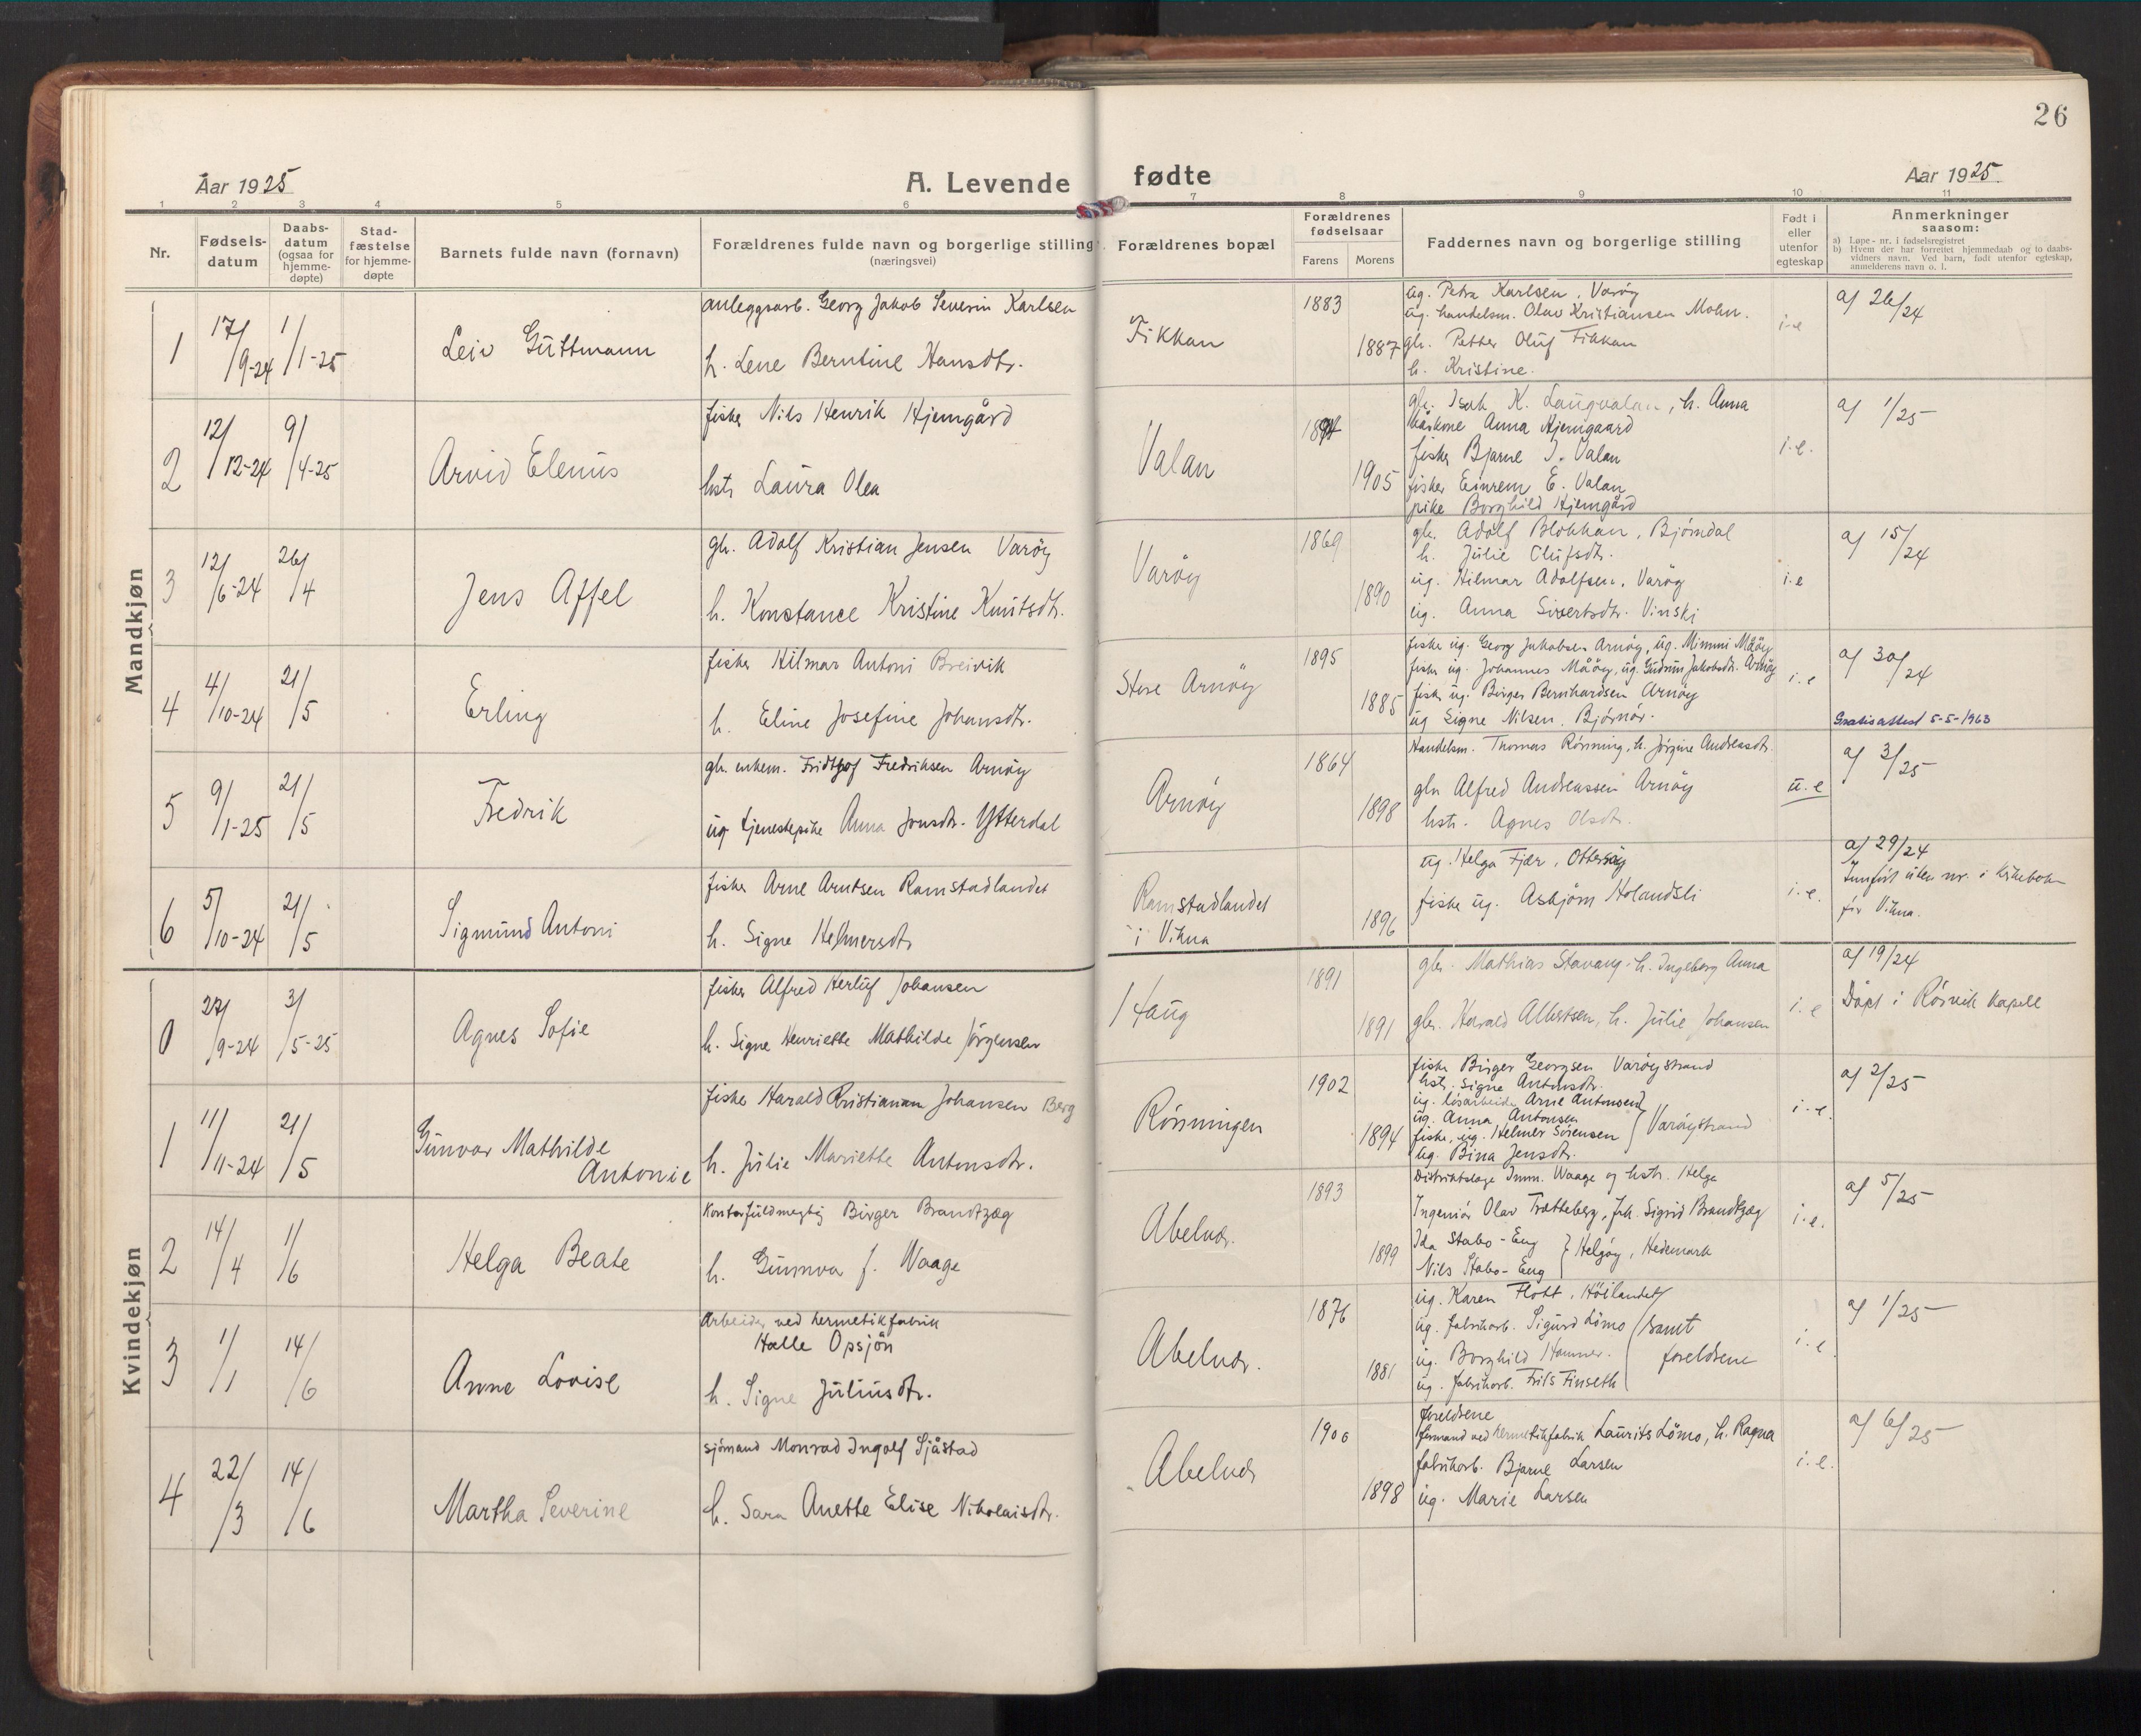 26
Aar 1925
A. Levende fødte
Aar 1925
1 2 3 4 5 6 7 8 9 10 11
Nr.
Fødsels-
datum
Daabs-
datum
(ogsaa for
hjemme-
døpte)
Stad-
fæstelse
for hjemme-
døpte
Barnets fulde navn (fornavn)
Forældrenes fulde navn og borgerlige stilling
(næringsvei)
Forældrenes bopæl
Forældrenes
fødselsaar
Farens Morens
Faddernes navn og borgerlige stilling
Født i
eller
utenfor
egteskap
Anmerkninger
saasom:
a) Løpe-nr. i fødselsregistret
b) Hvem der har forrettet hjemmedaab og to daabs-
vidners navn. Ved barn, født utenfor egteskap,
anmelderens navn o. l.
Mandkjøn
1
17/9-24
1/1-25
Leiv Guttmann
anleggsarb. Georg Jakob Severin Karlsen
h. Lene Berntine Hansdtr.
Fikkan
1883
1887
ug. Petra Karlsen, Varöy
ug. handelsm. Olav Kristiansen Mohn.
gb. Petter Oluf Fikkan
h. Kristine.
i-e
a) 26/24
2
12/12-24
9/4-25
Arvid Elenus
fisker Nils Henrik Hjemgård
hstr Laura Olea
Valan
1905
gbr. Isak K. Langvalan, h. Anna
kårkone Anna Hjemgaard
fisker Bjarne J. Valan
fisker Einrem E. Valan
pike Borghild Hjemgård
i.e.
a) 1/25
3
12/6-24
26/4
Jens Affel
gb. Adolf Kristian Jensen Varöy
h. Konstance Kristine Knutsdtr.
Varöy
1869
1890
gb. Adolf Blokkan, Bjørndal
h. Julie Olufsdtr.
ug. Hilmar Adolfsen, Varöy
ug. Anna Sivertsdtr. Vinski
i.e
a) 15/24
4
4/10-24
21/5
Erling
fisker Hilmar Antoni Breivik
h. Eline Josefine Johansdtr.
Store Arnöy
1895
1885
fisker ug. Georg Jakobsen Arnöy, ug. Mimmi Måöy
fisker ug. Johannes Måöy, ug. Gudrun Jakobsdtr. Arnöy
fisker ug. Birger Bernhardsen Arnöy
ug Signe Nilsen. Bjørnör.
i.e
a) 30/24
Gratisattest 5-5-1963
5
9/1-25
21/5
Fredrik
gb. enkem. Fridtjof Fredriksen Arnöy
ug tjenestepike Anna Jonsdtr. Ytterdal
Arnöy
1864
1898
Handelsm. Thomas Rönning, h. Jörgine Andreasdtr.
gbr Alfred Andreassen Arnöy
hstr. Agnes Olsdtr.
u.e
a) 3/25
6
5/10-24
21/5
Sigmund Antoni
fisker Arne Arntsen Ramstadlandet
h. Signe Helmersdtr
Ramstadlandet
i Vikna
1896
ug. Helga Fjær, Ottersöy
fisker ug. Asbjörn Holandsli
i.e.
a) 29/24
Innfört uten nr. i kirkebok
for Vikna.
Kvindekjøn
0
27/9-24
3/5-25
Agnes Sofie
fisker Alfred Herluf Johansen
h. Signe Henriette Mathilde Jörgensen
Haug
1891
1891
gbr. Mathias Stavang, h. Ingeborg Anna
gbr. Harald Albertsen, h. Julie Johansen
i.e
a) 19/24
Döpt i Rörvik kapell
1
11/11-24
21/5
Gunvor Mathilde
Antonie
fisker Harald Kristian Johansen Berg
h. Julie Mariette Antonsdtr.
Rönningen
1902
1894
fisker Birger Georgsen Varöystrand
hstr. Signe Antonsdtr.
ug. lösarbeider Arne Antonsen
ug. Anna Antonsen
fisker, ug. Helmer Sörensen } Varöystrand
ug. Bina Jensdtr.
i-e.
a) 2/25
2
14/4
1/6
Helga Beate
Kontorfuldmegtig Birger Brandtzæg
h. Gunnva f. Waage
Abelvær.
1893
1899
Distriktslæge Imm. Waage og hstr. Helga
Ingeniör Olav Trætteberg, frk. Sigrid Brandtzæg
Ida Stabo-Eng
Nils Stabo-Eng } Helgöy, Hedemark
i.e.
a) 5/25
3
1/1
14/6
Anne Lovise
Arbeider ved hermetikfabrik
Halle Opsjön
h. Signe Juliusdtr.
Abelvær.
1876
1881
ug. Karen Flott, Höilandet
ug. fabrikarb. Sigurd Lömo
ug. Borghild Hammer.
ug. fabrikarb. Frits Finseth
samt
foreldrene
i.e.
a) 1/25
4
22/3
14/6
Martha Severine
sjömand Monrad Ingolf Sjåstad
h. Sara Anette Elise Nikolaisdtr.
Abelvær
1900
1898
foreldrene
formand ved hermetikfabrik Laurits Lömo, h. Ragna
fabrikarb. Bjarne Larsen
ug. Marie Larsen
i.e.
a) 6/25